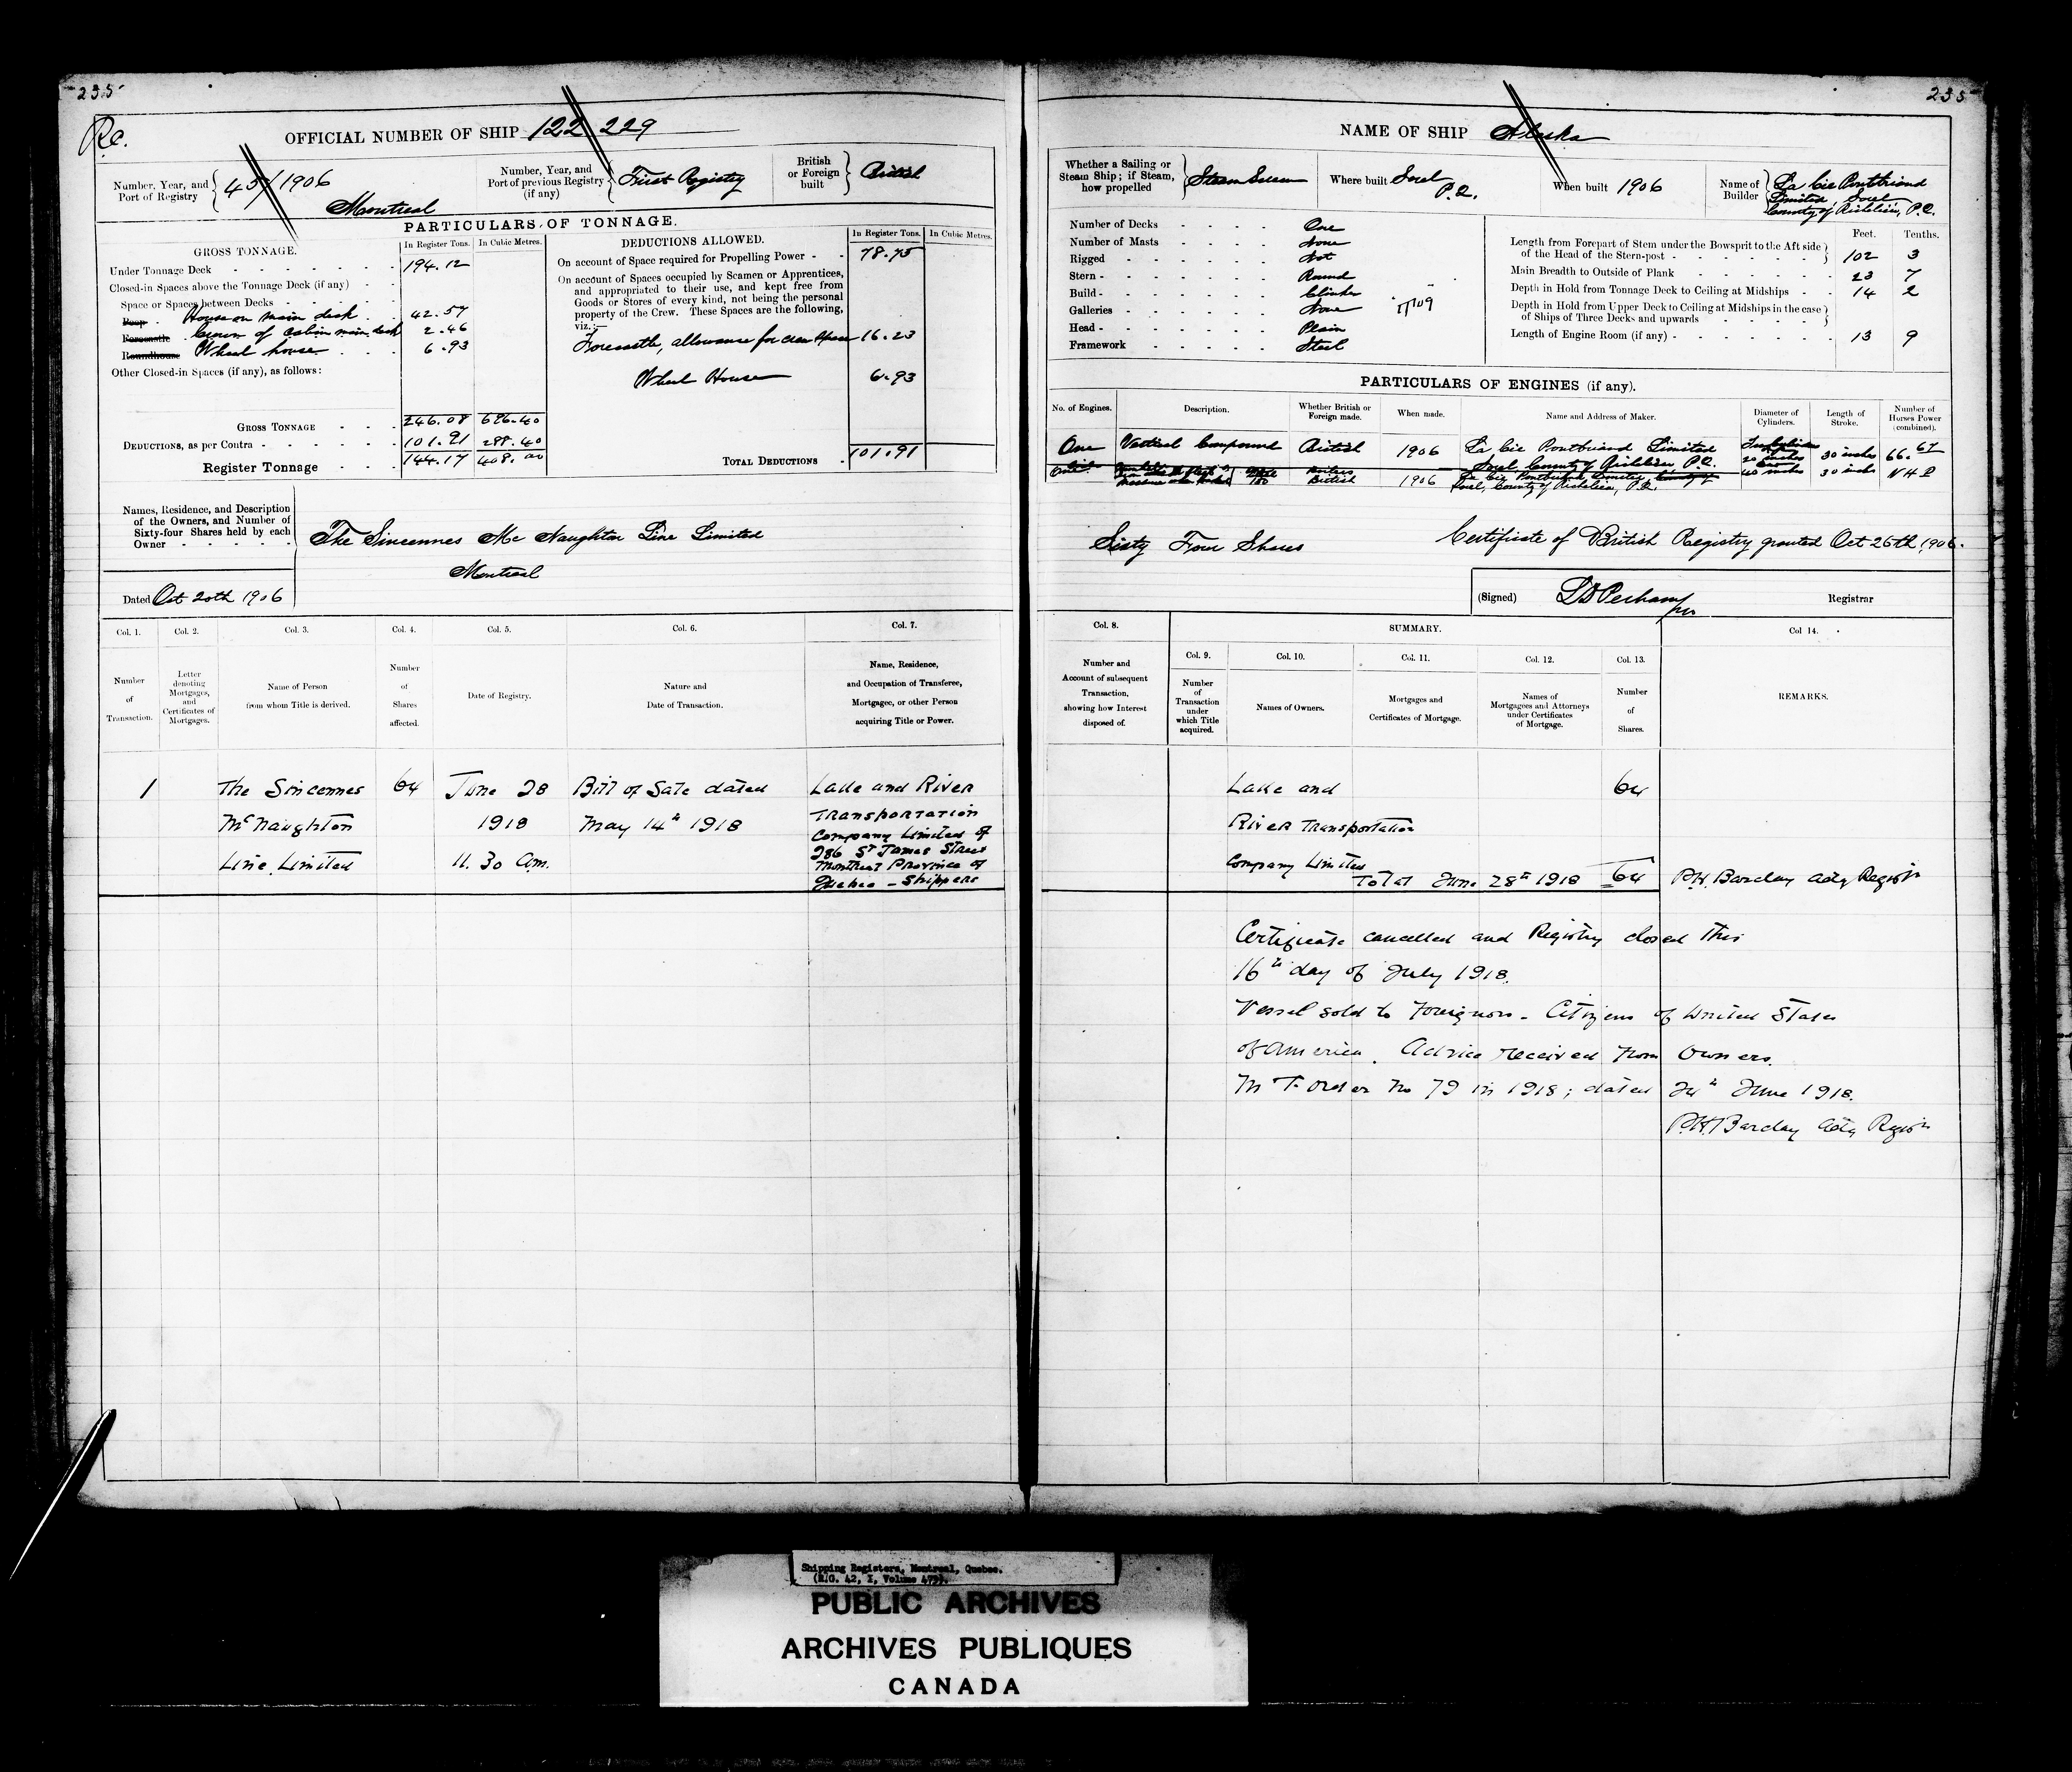 235
235
Re.
OFFICIAL NUMBER OF SHIP 122 229
Number, Year, and Port of Registry
45/1906
Montreal
Number, Year, and Port of previous Registry (if any)
First Registry
British or Foreign built
British
PARTICULARS OF TONNAGE.
GROSS TONNAGE.
In Register Tons.
In Cubic Metres.
Under Tonnage Deck 194.12
Closed-in Spaces above the Tonnage Deck (if any)
Space or Spaces between Decks
Poop House on main deck 42.57
Forecastle Crown of Cabin main deck 2.46
Roundhouse Wheel house 6.93
Other Closed-in Spaces (if any), as follows:
GROSS TONNAGE 246.08 696.40
DEDUCTIONS, as per Contra 101.91 288.40
Register Tonnage 144.17 408.00
DEDUCTIONS ALLOWED.
In Register Tons.
In Cubic Metres.
On account of Space required for Propelling Power 78.75
On account of Spaces occupied by Seamen or Apprentices,
and appropriated to their use, and kept free from
Goods or Stores of every kind, not being the personal
property of the Crew. These Spaces are the following,
viz.:—
Forecastle, allowance for crew space 16.23
Wheel House 6.93
TOTAL DEDUCTIONS 101.91
Names, Residence, and Description
of the Owners, and Number of
Sixty-four Shares held by each
Owner
The Sincennes Mc Naughton Line Limited
Montreal
Dated Oct 20th 1906
Col. 1.
Col. 2.
Col. 3.
Col. 4.
Col. 5.
Col. 6.
Col. 7.
Number of Transaction.
Letter denoting Mortgages, and Certificates of Mortgages.
Name of Person from whom Title is derived.
Number of Shares affected.
Date of Registry.
Nature and Date of Transaction.
Name, Residence, and Occupation of Transferee, Mortgagee, or other Person acquiring Title or Power.
1
The Sincennes
McNaughton
Line Limited
64
June 28
1918
11.30 am.
Bill of Sale dated
May 14th 1918
Lake and River
Transportation
Company Limited of
286 St James Street
Montreal Province of
Quebec - Shippers
NAME OF SHIP Alaska
Whether a Sailing or Steam Ship; if Steam, how propelled
Steam Screw
Where built Sorel P.Q.
When built 1906
Name of Builder
La Cie Pontbriand
Limited, Sorel
County of Richelieu, P.Q.
Number of Decks One
Number of Masts None
Rigged Not
Stern Round
Build Clinker
Galleries None
Head Plain
Framework Steel
Feet.
Tenths.
Length from Forepart of Stem under the Bowsprit to the Aft side
of the Head of the Stern-post 102 3
Main Breadth to Outside of Plank 23 7
Depth in Hold from Tonnage Deck to Ceiling at Midships 14 2
Depth in Hold from Upper Deck to Ceiling at Midships in the case
of Ships of Three Decks and upwards
Length of Engine Room (if any) 13 9
PARTICULARS OF ENGINES (if any).
No. of Engines.
Description.
Whether British or Foreign made.
When made.
Name and Address of Maker.
Diameter of Cylinders.
Length of Stroke.
Number of Horses Power (combined).
One
Vertical Compound
British
1906
La Cie Pontbriand Limited
Sorel County of Richelieu P.Q.
20 inches
40 inches
30 inches
30 inches
66.67
N H P
British
1906
Sorel, County of Richelieu, P.Q.
Sixty Four Shares
Certificate of British Registry granted Oct 26th, 1906.
(Signed)
Registrar
Col. 8.
SUMMARY.
Col 14.
Col. 9.
Col. 10.
Col. 11.
Col. 12.
Col. 13.
Number and Account of subsequent Transaction, showing how Interest disposed of.
Number of Transaction under which Title acquired.
Names of Owners.
Mortgages and Certificates of Mortgage.
Names of Mortgagees and Attorneys under Certificates of Mortgage.
Number of Shares.
REMARKS.
Lake and 64
River Transportation
Company Limited
Total June 28th 1918 64 P.H. Barclay actg Registr
Certificate cancelled and Registry closed this
16th day of July 1918.
Vessel sold to Foreigners - Citizens of United States
of America. Advice received from Owners.
M T. Order No 79 in 1918; dated 24th June 1918.
P.H. Barclay actg Registr
Shipping Registers, Montreal, Quebec.
(R.G. 42, I, Volume 479).
PUBLIC ARCHIVES
ARCHIVES PUBLIQUES
CANADA